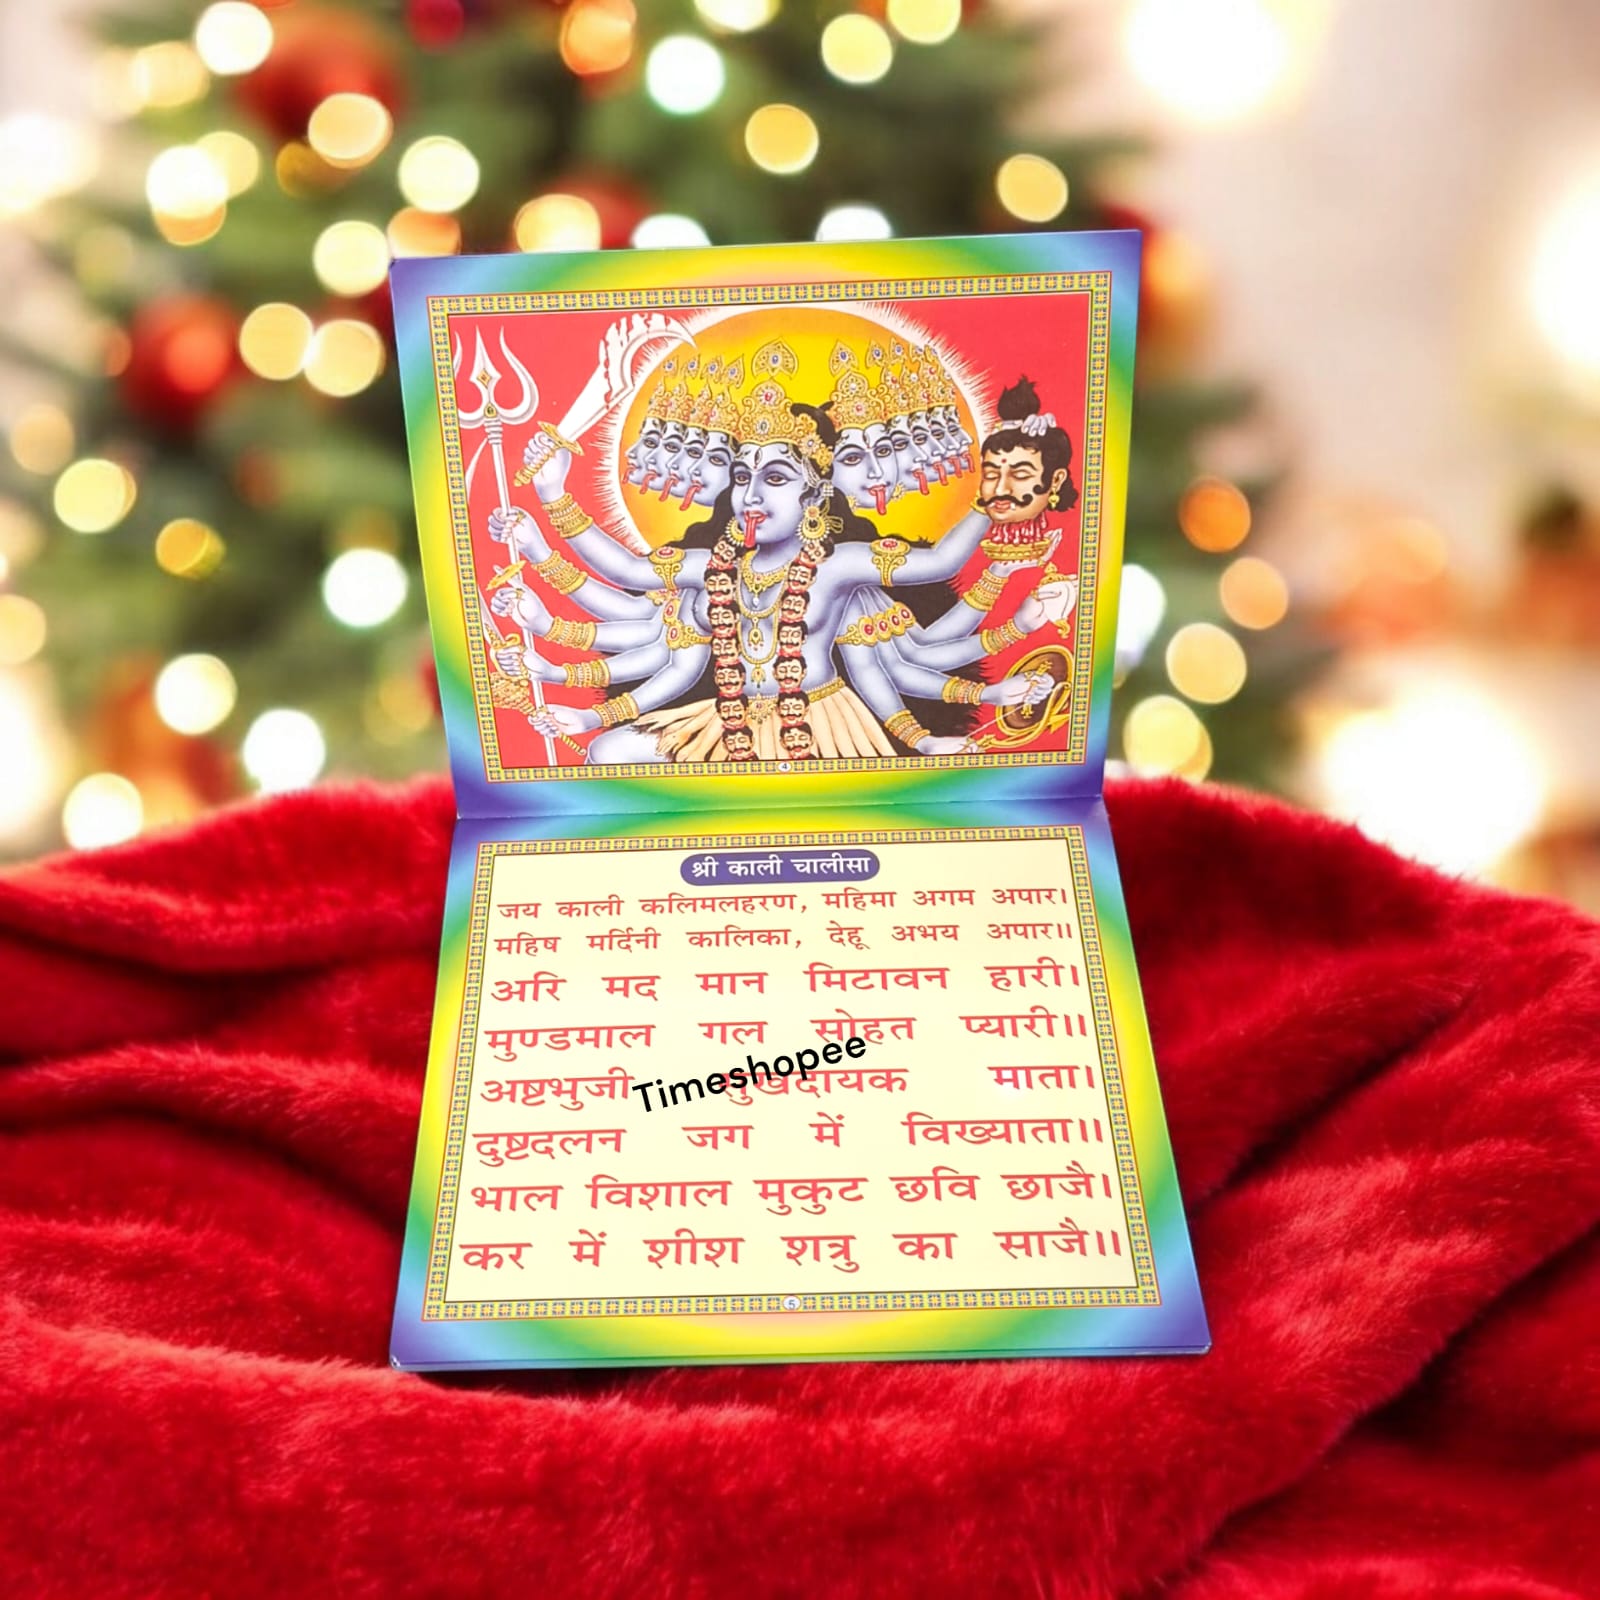 4
श्री काली चालीसा
जय काली कलिमलहरण, महिमा अगम अपार।
महिष मर्दिनी कालिका, देहू अभय अपार॥
अरि मद मान मिटावन हारी।
मुण्डमाल गल सोहत प्यारी॥
अष्टभुजी सुखदायक माता।
Timeshopee
दुष्टदलन जग में विख्याता॥
भाल विशाल मुकुट छवि छाजै।
कर में शीश शत्रु का साजै॥
5